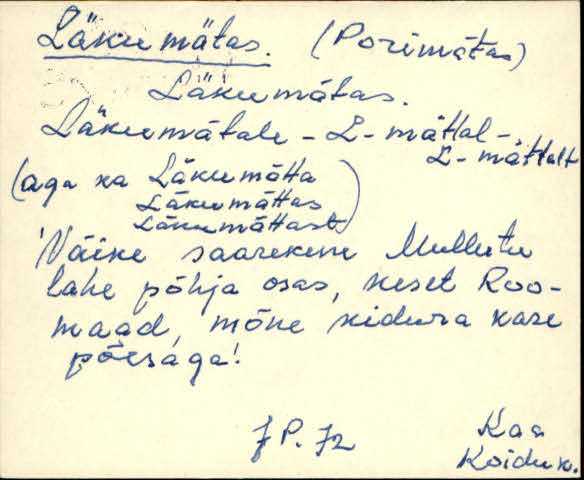 Läkumätas. (Porimätas)
Läkumätas.
Läkumätale - L-mättal -
L-mättalt
(aga ka Läkumätta
Läkumättas
Läkumättast)
Väike saarekene Mullutu
lahe põhja osas, keset Roo-
maad, mõne kidura kase
põesaga!
J P. 72
Kaa
Koiduk.